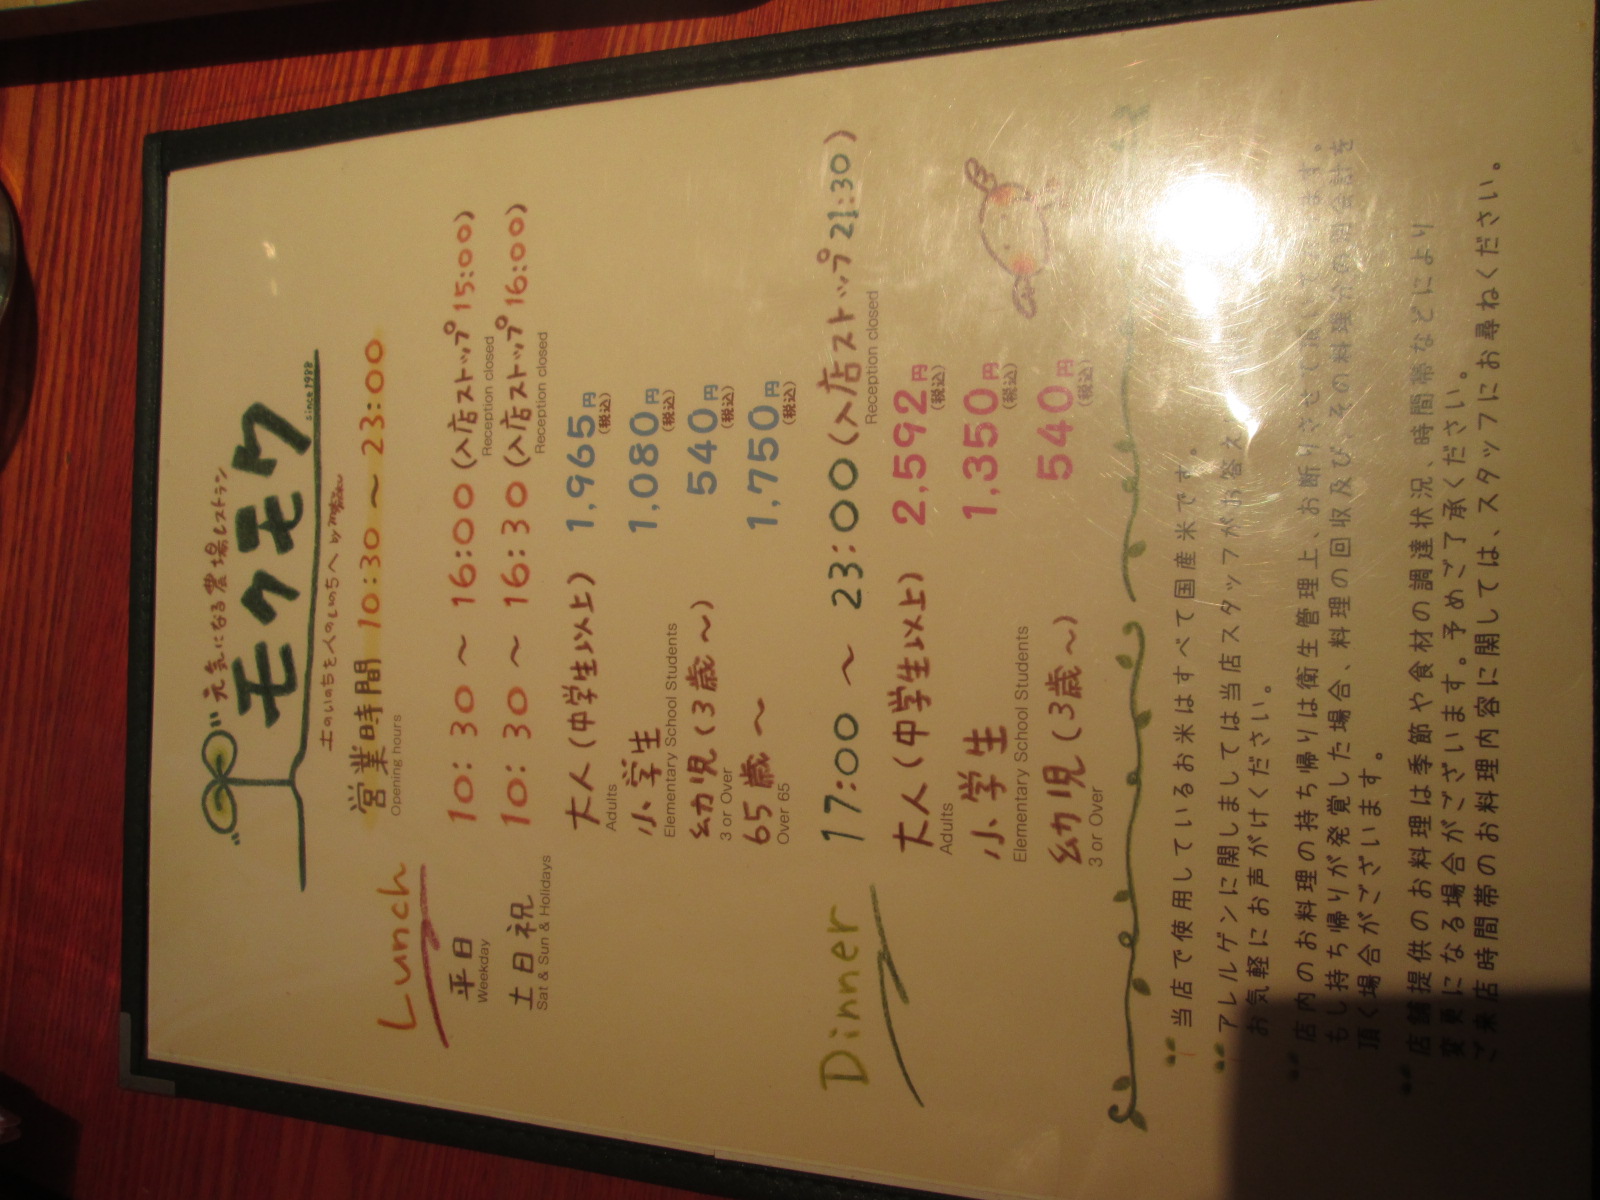 元気になる農場レストラン
モクモク
since 1988
土のいのちを人のいのちへ by
営業時間 10:30 ～ 23:00
Opening hours
Lunch
平日 10:30 ～ 16:00 (入店ストップ 15:00)
Weekday Reception closed
土日祝 10:30 ～ 16:30 (入店ストップ 16:00)
Sat & Sun & Holidays Reception closed
大人(中学生以上) 1,965円(税込)
Adults
小学生 1,080円(税込)
Elementary School Students
幼児(3歳～) 540円(税込)
3 or Over
65歳～ 1,750円(税込)
Over 65
Dinner 17:00 ～ 23:00 (入店ストップ 21:30)
Reception closed
大人(中学生以上) 2,592円(税込)
Adults
小学生 1,350円(税込)
Elementary School Students
幼児(3歳～) 540円(税込)
3 or Over
当店で使用しているお米はすべて国産米です。
アレルゲンに関しましては当店スタッフがお答え
お気軽にお声がけください。
店内のお料理の持ち帰りは衛生管理上、お断りさせて頂いて ます。
もし持ち帰りが発覚した場合、料理の回収及び、その料理分の お会計を
頂く場合がございます。
店舗提供のお料理は季節や食材の調達状況、時間帯などにより
変更になる場合がございます。予めご了承ください。
ご来店時間帯のお料理内容に関しては、スタッフにお尋ねください。